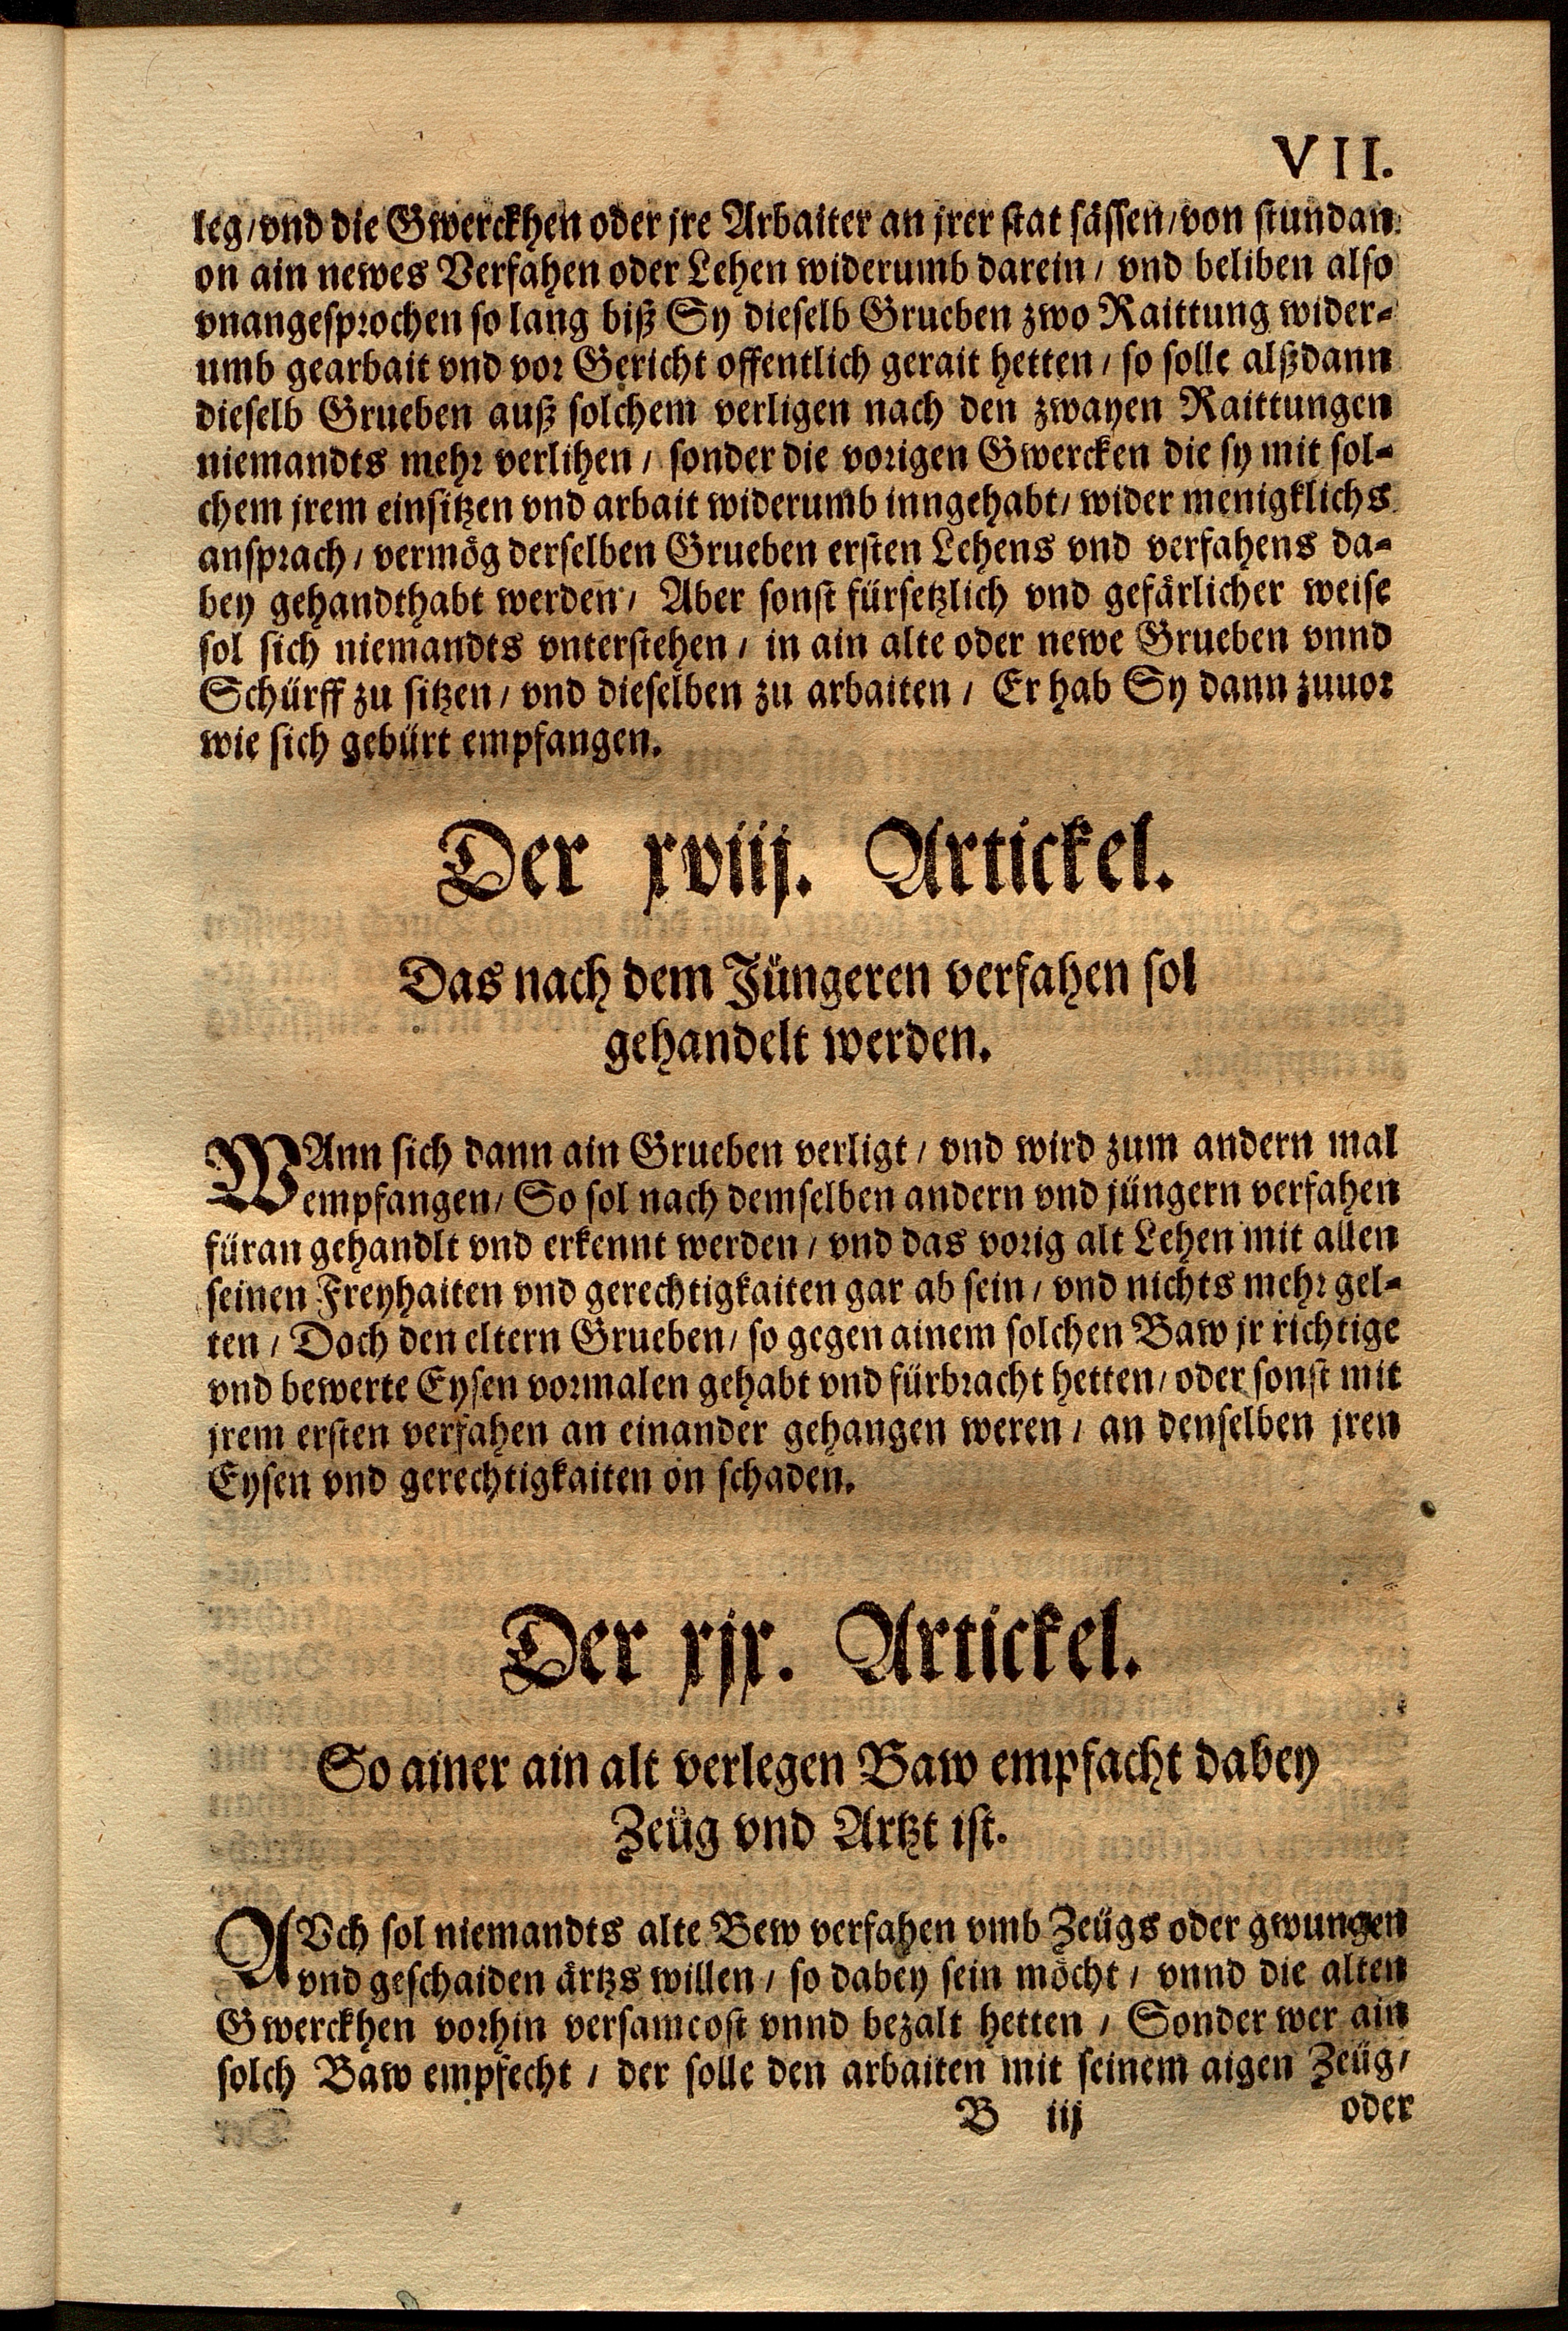 VII.
leg/vnd die Gwerckhen oder jre Arbaiter an jrer stat sässen/von stundan
on ain newes Verfahen oder Lehen widerumb darein / vnd beliben also
vnangesprochen so lang biß Sy dieselb Grueben zwo Raittung wider-
umb gearbait vnd vor Gericht offentlich gerait hetten / so solle alßdann
dieselb Grueben auß solchem verligen nach den zwayen Raittungen
niemandts mehr verlihen / sonder die vorigen Gwercken die sy mit sol-
chem jrem einsitzen vnd arbait widerumb inngehabt/ wider menigklichs
ansprach / vermög derselben Grueben ersten Lehens vnd verfahens da-
bey gehandthabt werden / Aber sonst fürsetzlich vnd gefärlicher weise
sol sich niemandts vnterstehen / in ain alte oder newe Grueben vnnd
Schürff zu sitzen / vnd dieselben zu arbaiten / Er hab Sy dann zuuor
wie sich gebürt empfangen.
Der xviij. Artickel.
Das nach dem Jüngeren verfahen sol
gehandelt werden.
WAnn sich dann ain Grueben verligt / vnd wird zum andern mal
empfangen/ So sol nach demselben andern vnd jüngern verfahen
füran gehandlt vnd erkennt werden / vnd das vorig alt Lehen mit allen
seinen Freyhaiten vnd gerechtigkaiten gar ab sein / vnd nichts mehr gel-
ten / Doch den eltern Grueben/ so gegen ainem solchen Baw jr richtige
vnd bewerte Eysen vormalen gehabt vnd fürbracht hetten/ oder sonst mit
jrem ersten verfahen an einander gehangen weren / an denselben jren
Eysen vnd gerechtigkaiten on schaden.
Der xjx. Artickel.
So ainer ain alt verlegen Baw empfacht dabey
Zeüg vnd Artzt ist.
AVch sol niemandts alte Bew verfahen vmb Zeügs oder gwungen
vnd geschaiden ärtzs willen / so dabey sein möcht / vnnd die alten
Gwerckhen vorhin versamcost vnnd bezalt hetten / Sonder wer ain
solch Baw empfecht / der solle den arbaiten mit seinem aigen Zeüg/
B iij oder